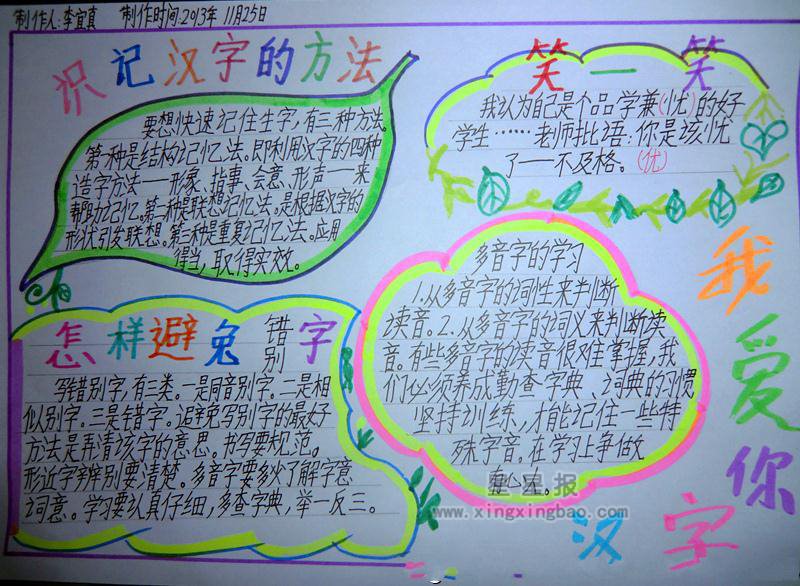 制作人:李宜真 制作时间:2013年11月25日
识记汉字的方法
要想快速记住生字,有三种方法。
第一种是结构记忆法。即利用汉字的四种
造字方法——形象、指事、会意、形声——来
帮助记忆。第二种是联想记忆法。是根据汉字的
形状引发联想。第三种是重复记忆法。应用
得当,取得实效。
笑一笑
我认为自己是个品学兼(忧)的好
学生……老师批语:你是该忧
了——不及格。(优)
多音字的学习
1.从多音字的词性来判断
读音。2.从多音字的词义来判断读
音。有些多音字的读音很难掌握,我
们必须养成勤查字典、词典的习惯
坚持训练,才能记住一些特
殊字音。在学习上争做
有心人。
怎样避免错别字
写错别字,有三类。一是同音别字。二是相
似别字。三是错字。避免写别字的最好
方法是弄清该字的意思。书写要规范。
形近字辨别要清楚。多音字要多了解字意
词意。学习要认真仔细,多查字典,举一反三。
我爱你
汉字
星星报
www.xingxingbao.com